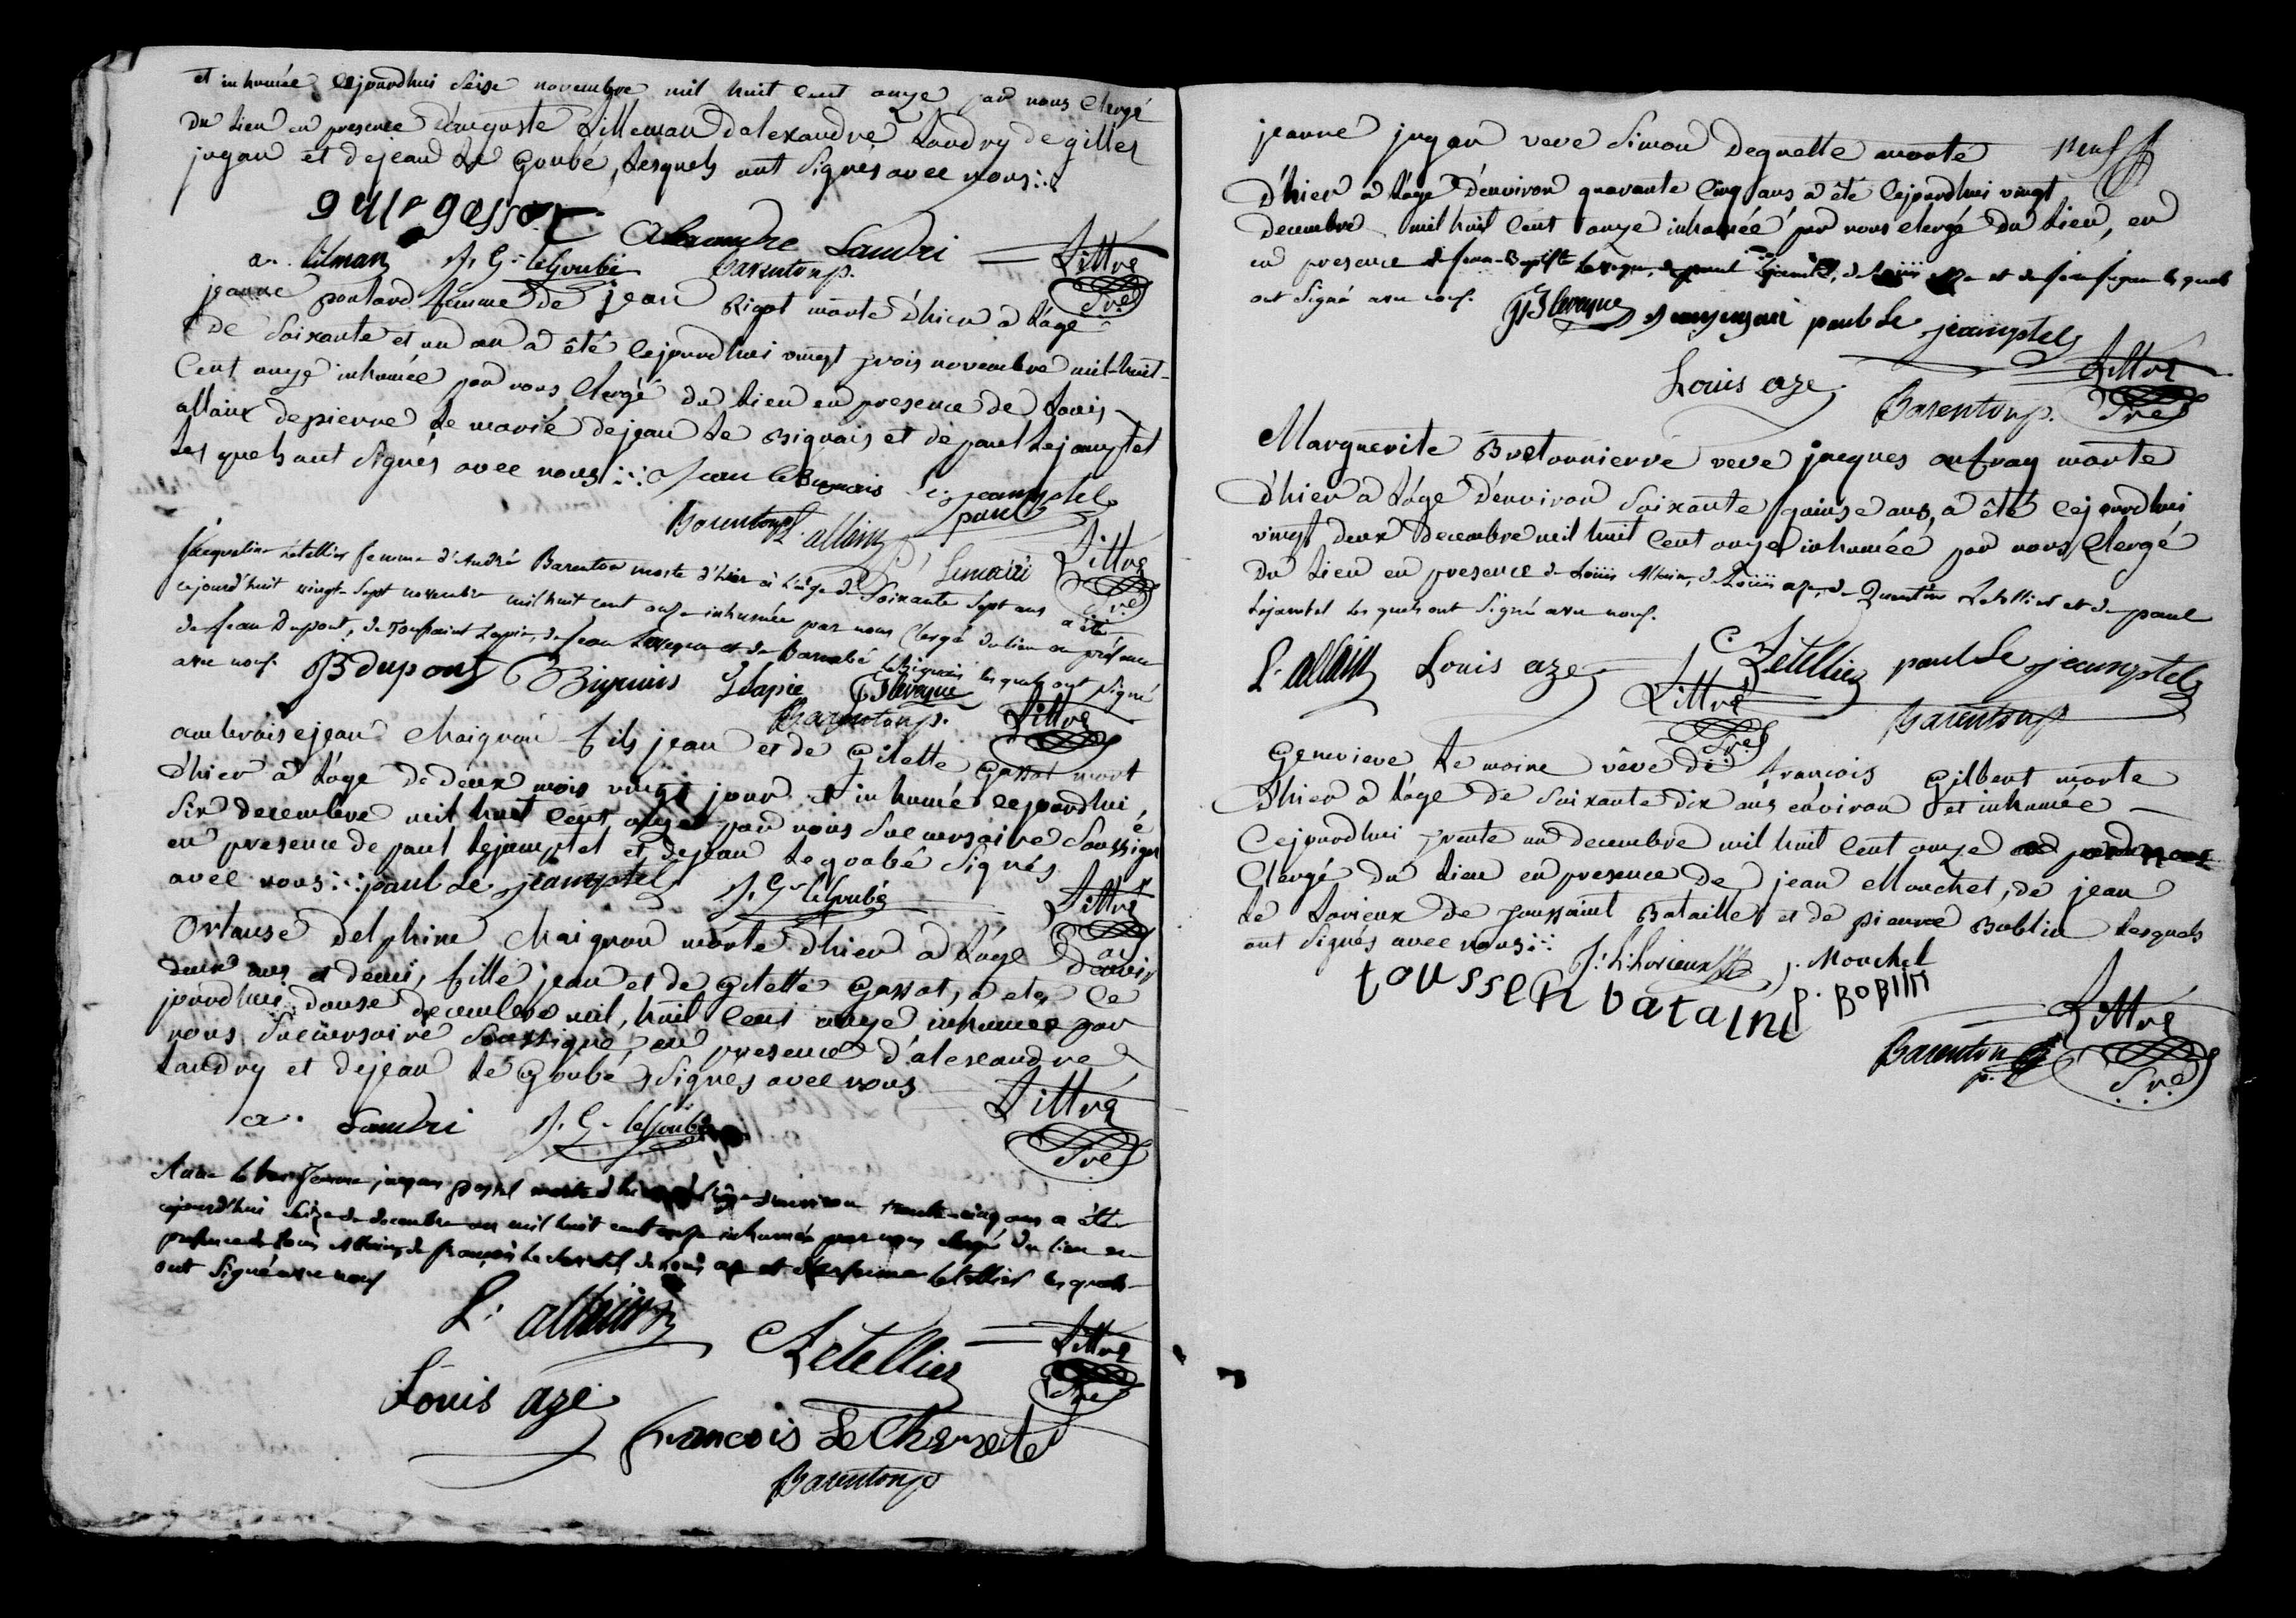 et inhumée Cejourdhui Seise novembre mil huit Cent onze par nous Clergé
Du Lieu en presence D'auguste Lilleman D'alexandre Landry de gilles
jugan et de jean Le Goubé, Lesquels ont Signés avec nous
Alexandre Landri
a. lilman J. G. leGoubé Barenton p. Littré
Sre
jeanne poulard femme de jean Rigot morte D'hier à L'age
De Soixante et un an a été Cejourdhui vingt trois novembre mil-huit-
Cent onze inhumée par nous Clergé du Lieu en presence de Louis
allaix de pierre Le marié de jean Le Biguais et de paul Lejamptel
Les quels ont Signés avec nous Jean le Biguais
Le jeamptel paul
Barenton p. L. allain Littré
Sre
Jacqueline Letellier femme d'André Barenton morte d'hier à L'age de Soixante Sept ans a été
cejourd'huit vingt-Sept novembre mil huit cent onze inhumée par nous Clergé du lieu en présence
de Jean Dupont, de Toussaint Lapie, de Jean Leveque et de Barnabé les quels ont Signé
avec nous. B dupont Biguais Lapie JB leveque
Barenton p. Littré
ambroise jean Chaignon fils jean et de Gilette Gassot mort
D'hier à L'age De Deux mois vingt jour et inhumé Cejourdhui
Six Decembre mil huit Cent onze par nous Sucursaire Soussigné
en presence de paul Lejamptel et de jean Le goubé Signés
avec nous paul Le jeamptel J. G. leGoubé Littré
Ortanse Delphine Chaignon morte D'hier à L'age D'environ
deux ans et demi, fille jean et de Gilette Gassot, a eté Ce
jourdhui Douse Decembre mil, huit Cent onze inhumée par
nous Sucursaire Soussigné, en presence d'alexandre
Landry et de jean Le Goubé Signés avec nous
a. Landri J. G. leGoubé Littré
Sre
femme jacques d'environ trente cinq ans a été
cejourd'hui Seize de decembre an mil huit cent onze inhumée par nous clergé du lieu en
présence de Louis Allain, de françois Le de Louis aze et Letellier les quels
ont Signé avec nous
L. allain Letellier Littré
Sre
Louis aze
francois Le
Barenton p
jeanne jugan veve Simon Deguette morte
D'hier à L'age D'environ quarante Cinq ans, a été Cejourdhui vingt
Decembre mil huit Cent onze inhumée par nous clergé Du Lieu, en
en presence de Jean-Baptiste Leveque, de paul Lejamtel, de Louis aze et de les quels
ont Signé avec nous. JB leveque paul Le jeamptel
Louis aze Barenton p. Littré
Sre
Marguerite Bretonnierre veve jacques aufray morte
D'hier à L'age D'environ Soixante quinse ans, a été Cejourdhui
vingt deux Decembre mil huit Cent onze inhumée par nous Clergé
Du Lieu en presence de Louis Allain, de Louis aze, de Quentin Letellier et de paul
Lejamtel Les quels ont Signé avec nous.
L. allain Louis aze Letellier paul Le jeamptel
Littré Barenton p
Sre
Genevieve Le moine vêve de françois Gilbert morte
D'hier à L'age De Soixante Dix ans environ et inhumée
Cejourdhui trente un decembre mil huit Cent onze
Clergé Du Lieu en presence de jean Mouchet, de jean
Le Lorieux de toussaint Bataille et de pierre Boblin Lesquels
ont Signés avec nous J. LeLorieux J. Mouchel
tousseN bataIne P. BOPIIN
Littré
Barenton p. Sre